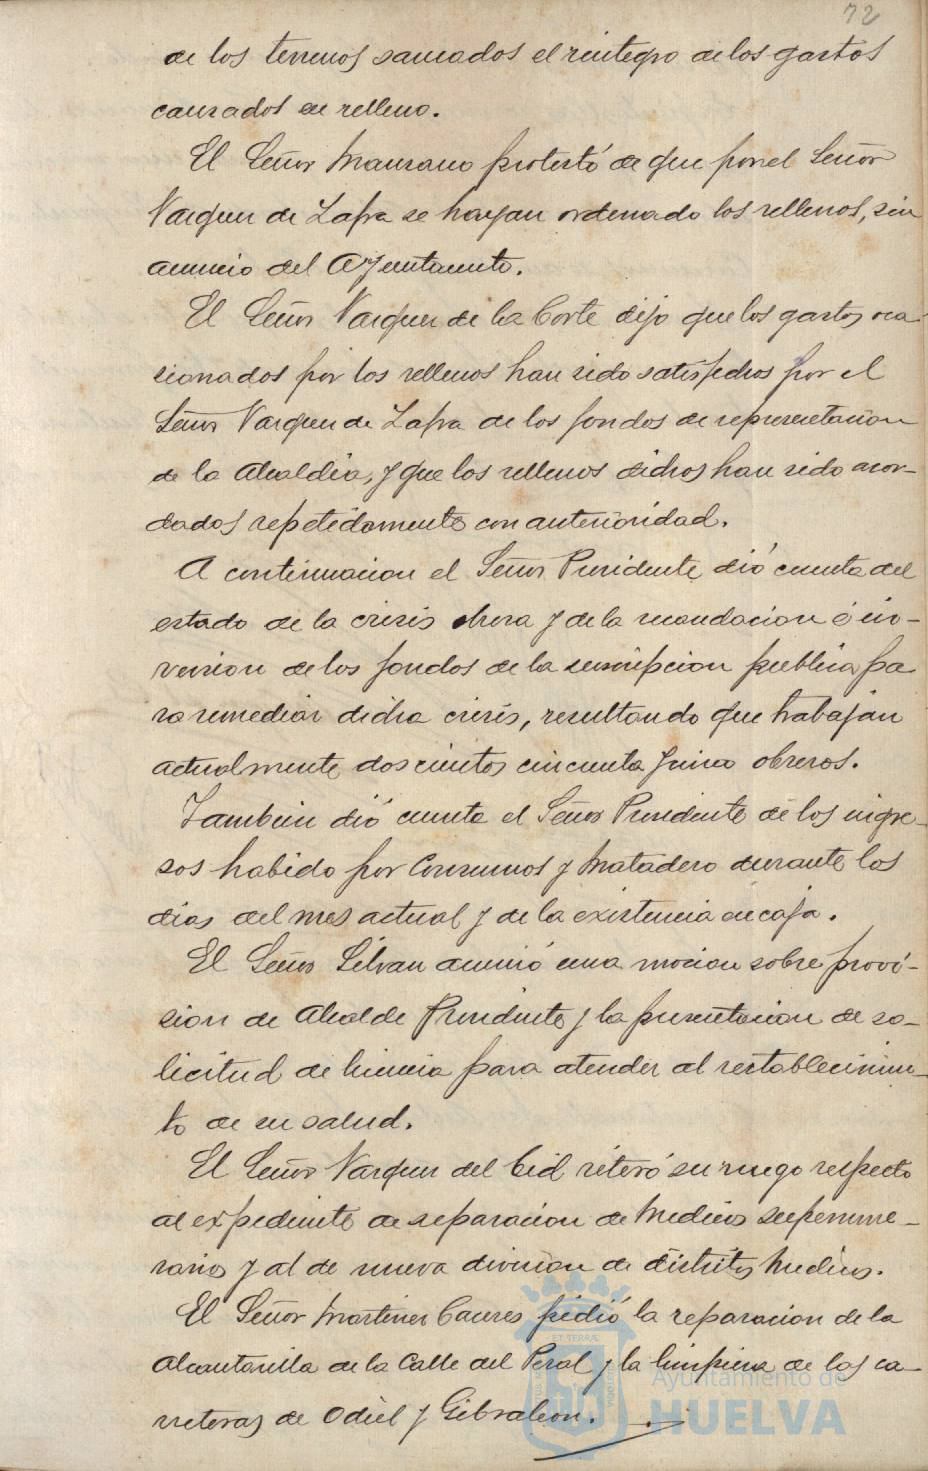 72
de los terrenos saneados el reintegro de los gastos
causados en relleno.
El Señor Manzano protestó de que por el Señor
Vazquez de Zafra se hayan ordenado los rellenos, sin
anuncio del Ayuntamiento.
El Señor Vazquez de la Corte dijo que los gastos oca-
sionados por los rellenos han sido satisfechos por el
Señor Vazquez de Zafra de los fondos de representacion
de la Alcaldia, y que los rellenos dichos han sido acor-
dados repetidamente con anterioridad.
A continuacion el Señor Presidente dió cuenta del
estado de la crisis obrera y de la recaudacion é in-
version de los fondos de la suscripcion publica pa
ra remediar dicha crisis, resultando que trabajan
actualmente doscientos cincuenta y cinco obreros.
Tambien dió cuenta el Señor Presidente de los ingre-
sos habido por Consumos y Matadero durante los
dias del mes actual y de la existencia en caja.
El Señor Silvan anunció una mocion sobre provi-
sion de Alcalde Presidente y la presentacion de so-
licitud de licencia para atender al restablecimien-
to de su salud.
El Señor Vazquez del Cid reteró su ruego respecto
al expediente de separacion de Medicos supernume-
rarios y al de nueva division de distritos Medicos.
El Señor Martinez Caceres pidió la reparacion de la
Alcantarilla de la Calle del Peral y la limpieza de las ca-
rreteras de Odiel y Gibraleon.
Ayuntamiento de
HUELVA